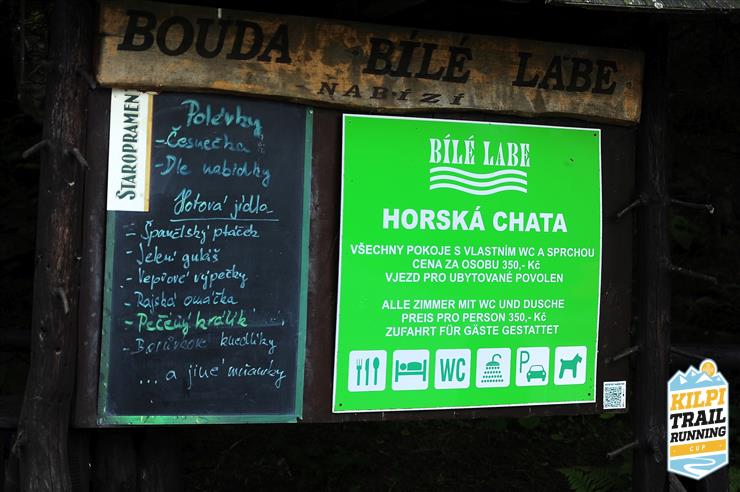 BOUDA BÍLÉ LABE
NABÍZÍ
STAROPRAMEN
Polévky
-Česnečka
-Dle nabídky
Hotová jídla
- Španělský ptáček
-Jelení guláš
-Vepřové výpečky
-Rajská omáčka
-Pečený králík
- Borůvkové knedlíky
...a jiné mňamky
BÍLÉ LABE
HORSKÁ CHATA
VŠECHNY POKOJE S VLASTNÍM WC A SPRCHOU
CENA ZA OSOBU 350,- Kč
VJEZD PRO UBYTOVANÉ POVOLEN
ALLE ZIMMER MIT WC UND DUSCHE
PREIS PRO PERSON 350,- Kč
ZUFAHRT FÜR GÄSTE GESTATTET
WC
P
KILPI
TRAIL
RUNNING
CUP